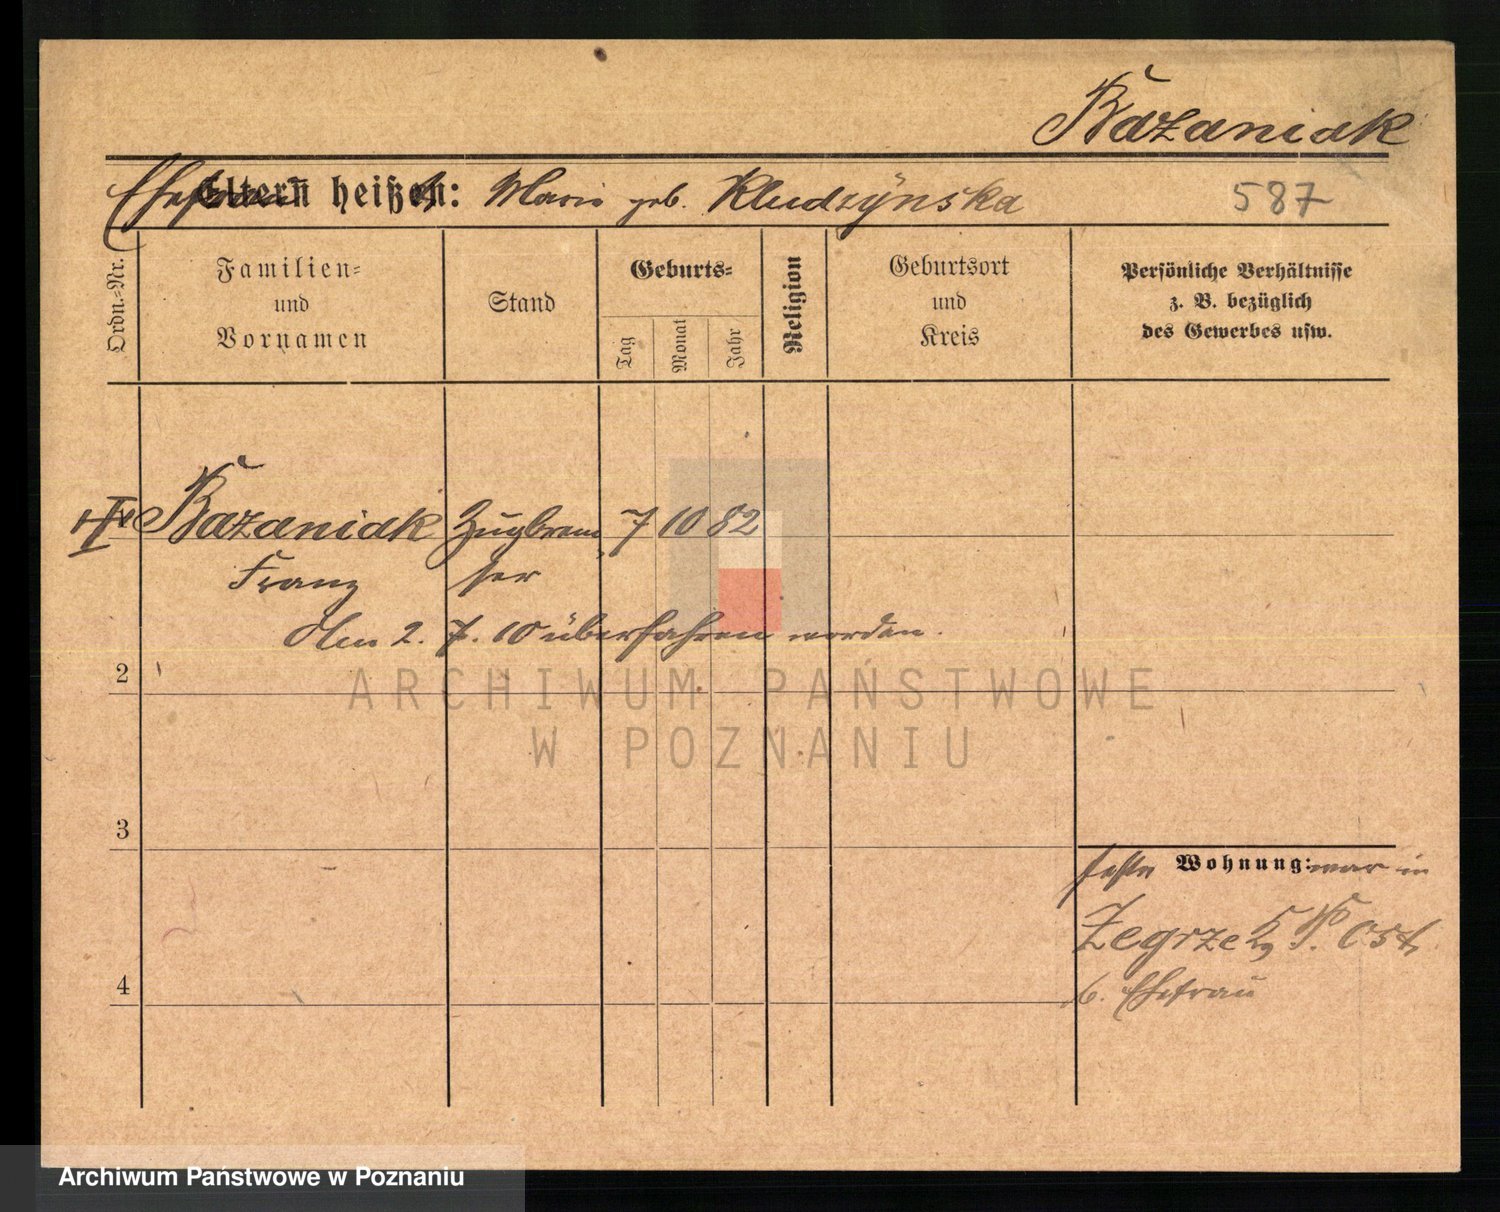 Kazaniak
Ehefrau Eltern heißen: Marie geb. Kludzÿnska 587
Ordn.=Nr. Familien= und Vornamen Stand Geburts= Tag Monat Jahr Religion Geburtsort und Kreis Persönliche Verhältnisse z. B. bezüglich des Gewerbes usw.
Kazaniak Zugbrem 7 10 82
Franz ser
Am 2. 7. 10 überfahren worden.
2
ARCHIWUM PAŃSTWOWE
W POZNANIU
3
Wohnung: war in
Zegrze Ost
4
b. Ehefrau
Archiwum Państwowe w Poznaniu